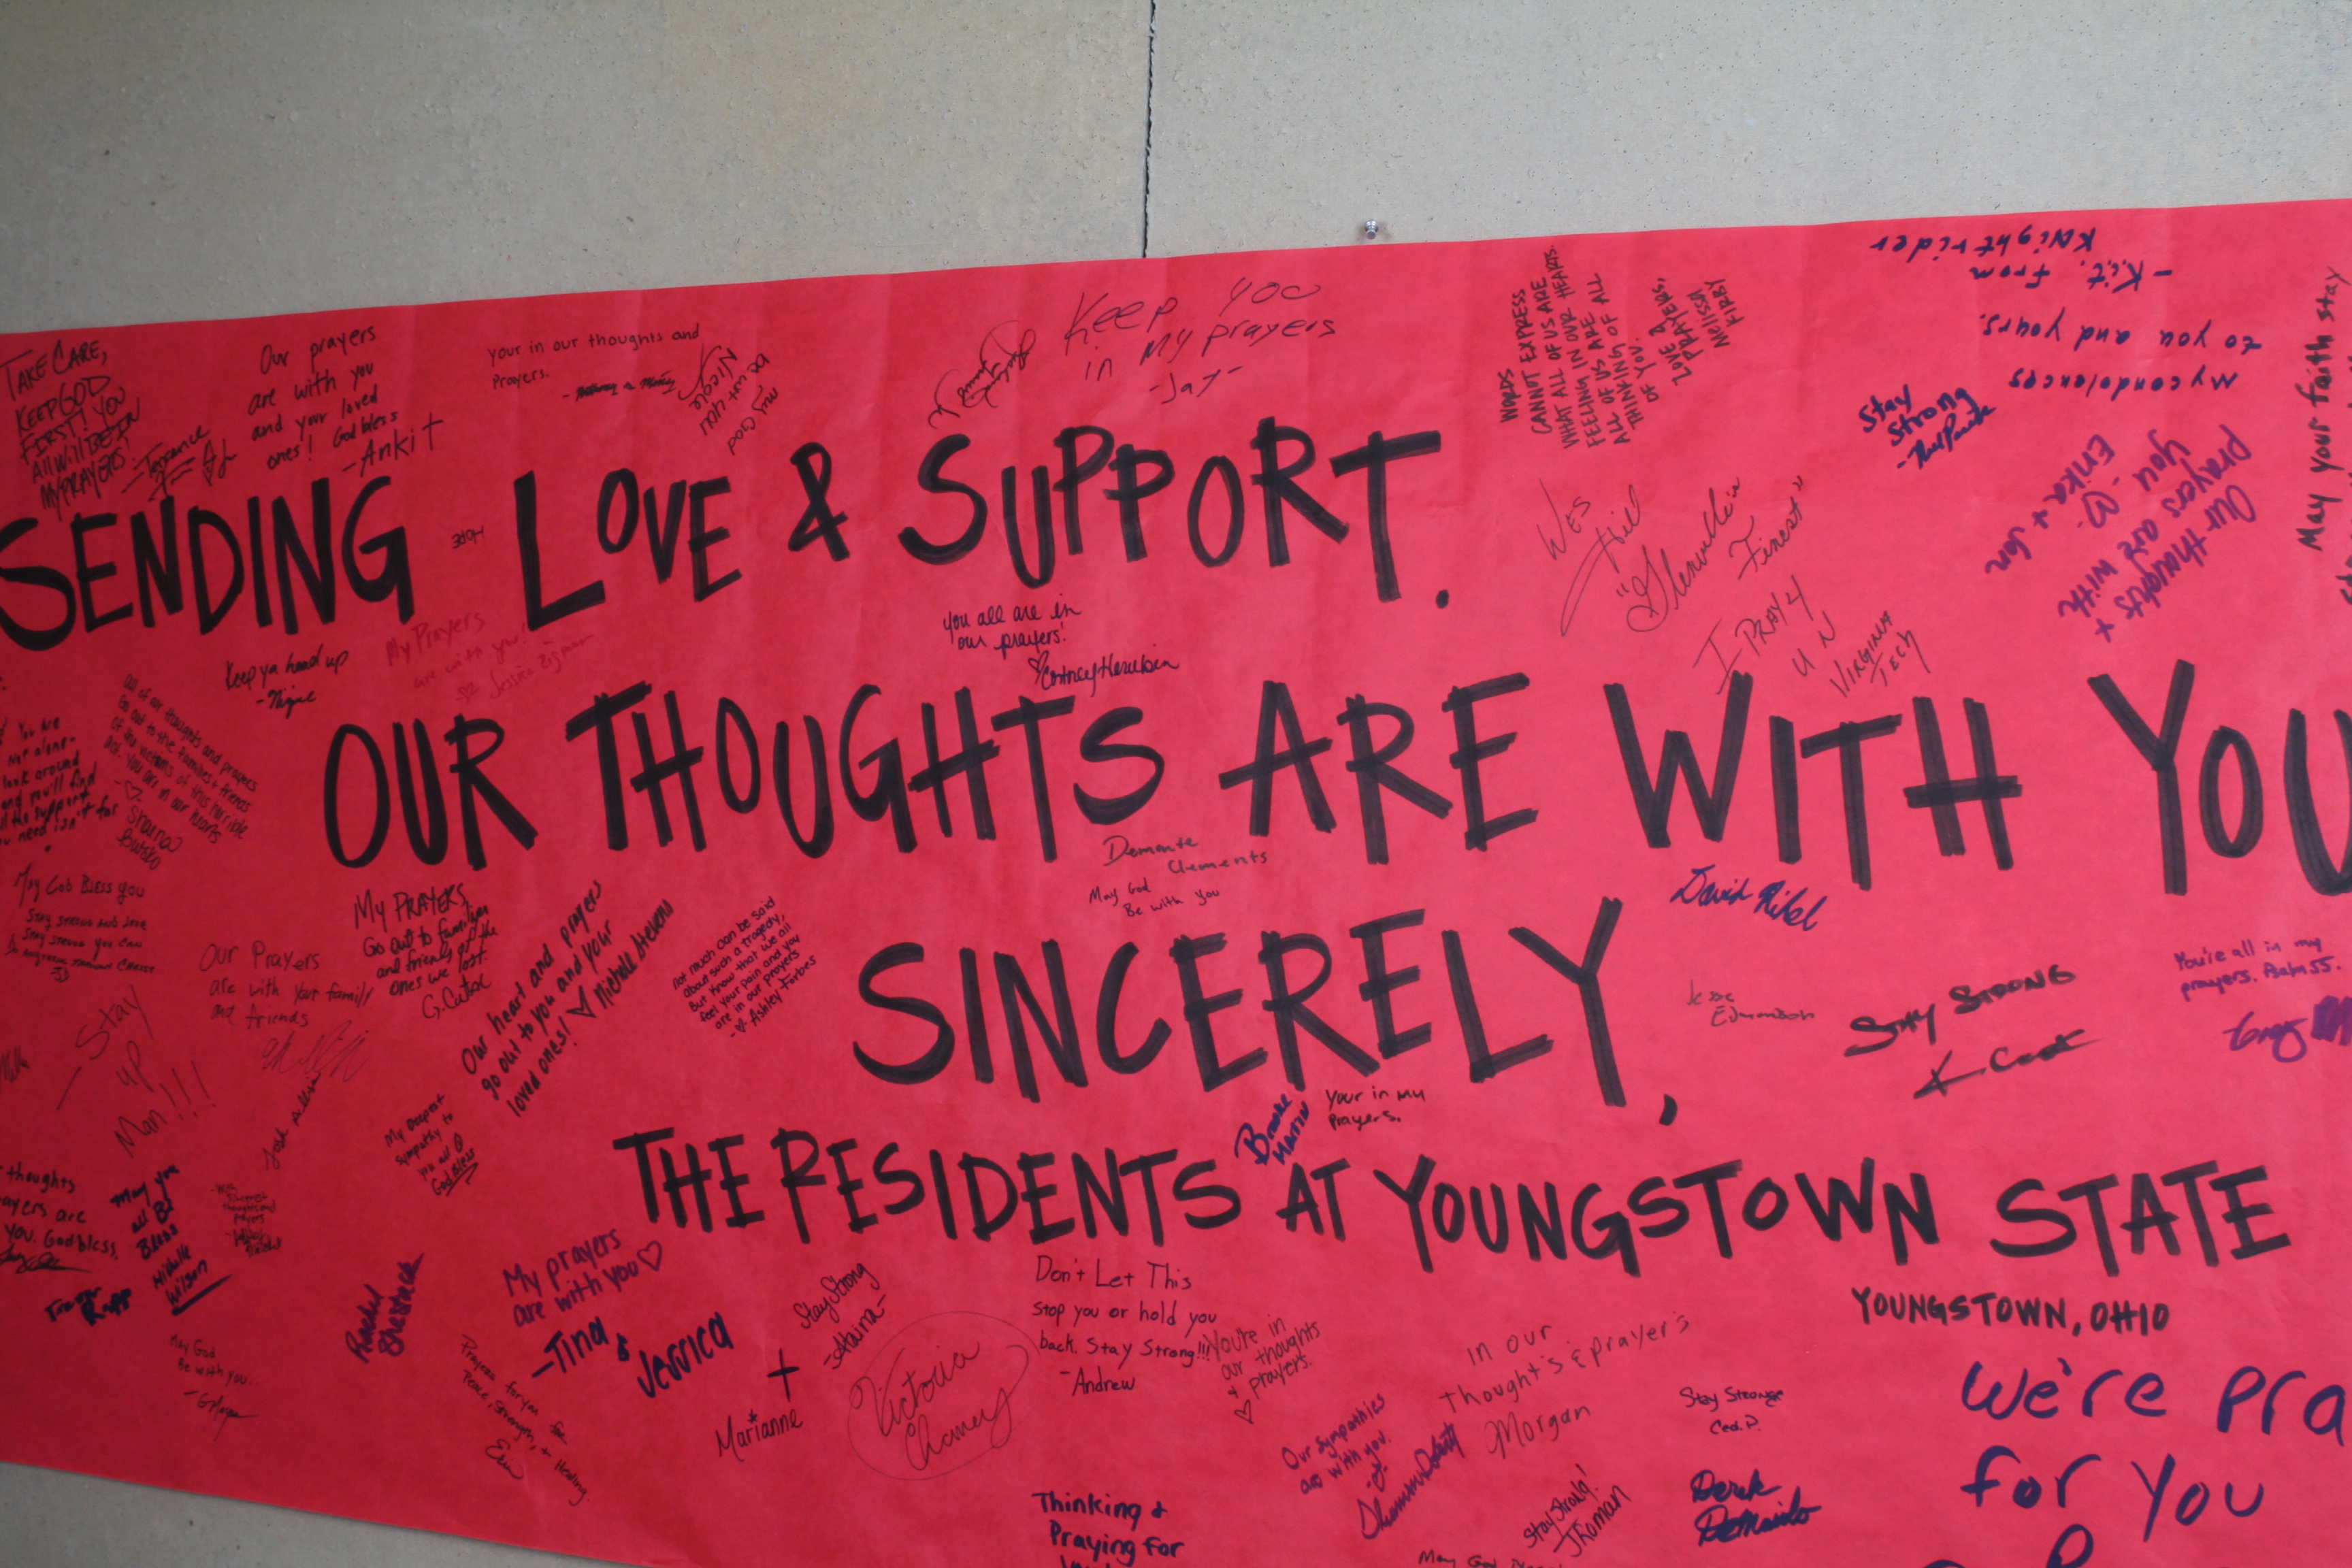 SENDING LOVE & SUPPORT.
OUR THOUGHTS ARE WITH YOU
SINCERELY,
THE RESIDENTS AT YOUNGSTOWN STATE
YOUNGSTOWN, OHIO
TAKE CARE,
KEEP GOD
FIRST! YOU
All Will BE IN
MY PRAYERS!
-Terrance
Our prayers
are with you
and your loved
ones! God bless
-Ankit
your in our thoughts and
Prayers.
my God
be with you
Nicole
Keep you
in my prayers
-Jay-
WORDS
CANNOT EXPRESS
WHAT ALL OF US ARE
FEELING IN OUR HEARTS.
ALL OF US ARE ALL
THINKING OF ALL
OF YOU.
LOVE &
PRAYERS,
MELISSA
FIRBY
My condolences
to you and yours.
-K.i.t. from
Knightrider
May your faith stay
Stay
Strong
Our thoughts +
prayers are with
you
Erika + Jon
HOPE
Wes
Hill
"Glenville
Finest"
I PRAY 4
U N
VIRGINIA
TECH
you all are in
our prayers!
Keep ya head up
-Nique
My Prayers
are with you!
Jessica Zigman
You are
Not alone-
look around
and you'll find
all the support
you need isn't far
All of our thoughts and prayers
Go out to the families & friends
of the victims of this horrible
act. You are in our hearts
Shaina
May God Bless You
STAY STRONG AND
STAY STRONG YOU CAN
THROUGH CHRIST
Our Prayers
are with your family
and friends
My PRAYERS
Go out to families
and friends of the
ones we lost.
Our heart and prayers
go out to you and your
loved ones! Michelle Stevens
Not much can be said
about such a tragedy,
But know that we all
feel your pain and you
are in our prayers
Ashley Forbes
Demonte
Clements
May God
Be with you
David
Jesse
Edmondson
Stay Strong
You're all in my
prayers. Psalm 55.
Stay
up
Man!!!
My Deepest
Sympathy to
you all
God Bless
Brooke
Martin
Your in my
Prayers.
thoughts
ayers are
you. God bless
May you
all Be
Bless
Michelle
Wilson
Trevor
Rapp
With
Deepest
thoughts and
prayers
Rachel
Shestack
My prayers
are with you
-Tina &
Jessica
Stay Strong
-Alaina-
Marianne
Victoria
Chaney
Don't Let This
Stop you or hold you
back. Stay Strong!!!
-Andrew
You're in
our thoughts
+ prayers.
In our
Thought's & prayer's
Morgan
Our Sympathies
are with you.
Stay Stronge
Ced. P.
We're pra
for you
May God
Be with you.
Prayers for you for
Peace, Strength, + Healing.
Erin
Thinking +
Praying for
Stay Strong!
Derek